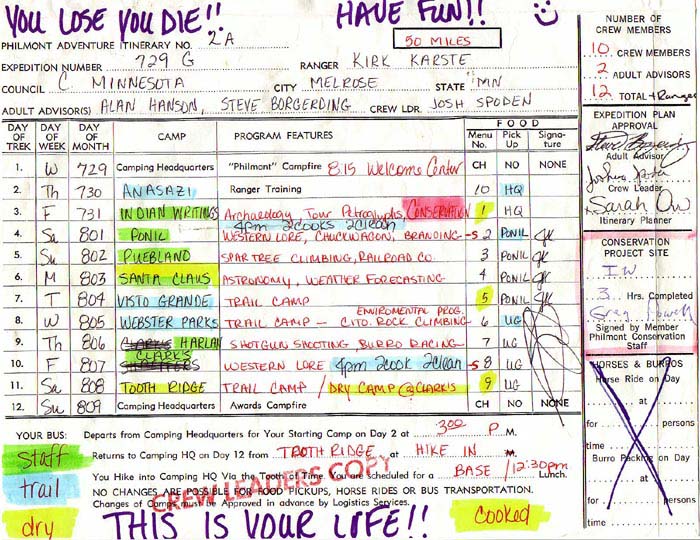 YOU LOSE YOU DIE!! HAVE FUN!!
PHILMONT ADVENTURE ITINERARY NO. 2A 50 MILES
EXPEDITION NUMBER 729 G RANGER KIRK KARSTE
COUNCIL C. MINNESOTA CITY MELROSE STATE MN
ADULT ADVISOR(S) ALAN HANSON, STEVE BORGERDING CREW LDR. JOSH SPODEN
NUMBER OF CREW MEMBERS
10 CREW MEMBERS
2 ADULT ADVISORS
12 TOTAL + Ranger
EXPEDITION PLAN APPROVAL
Adult Advisor
Crew Leader
Sarah Ow
Itinerary Planner
CONSERVATION PROJECT SITE
IW
3 Hrs. Completed
Signed by Member
Philmont Conservation Staff
HORSES & BURROS
Horse Ride on Day
at
for persons
time
Burro Packing on Day
at
for persons
time
DAY OF TREK DAY OF WEEK DAY OF MONTH CAMP PROGRAM FEATURES FOOD Menu No. Pick Up Signature
1. W 729 Camping Headquarters "Philmont" Campfire 8:15 Welcome Center CH NO NONE
2. Th 730 ANASAZI Ranger Training 10 HQ
3. F 731 INDIAN WRITINGS Archaeology Tour Petroglyphs, CONSERVATION 1 HQ
4pm 2cooks 2clean
4. Sa 801 PONIL WESTERN LORE, CHUCKWAGON, BRANDING -S 2 PONIL JK
5. Su 802 PUEBLANO SPAR TREE CLIMBING, RAILROAD CO. 3 PONIL JK
6. M 803 SANTA CLAUS ASTRONOMY, WEATHER FORECASTING 4 PONIL JK
7. T 804 VISTO GRANDE TRAIL CAMP 5 PONIL JK
ENVIROMENTAL PROG.
8. W 805 WEBSTER PARKS TRAIL CAMP - CITO. ROCK CLIMBING 6 UG
9. Th 806 CLARKS HARLAN SHOTGUN SHOOTING, BURRO RACING 7 UG
CLARKS
10. F 807 WESTERN LORE 4pm 2cook 2clean -S 8 UG
11. Sa 808 TOOTH RIDGE TRAIL CAMP / DRY CAMP @ CLARK'S 9 UG
12. Su 809 Camping Headquarters Awards Campfire CH NO NONE
YOUR BUS: Departs from Camping Headquarters for Your Starting Camp on Day 2 at 300 P M.
Returns to Camping HQ on Day 12 from TOOTH RIDGE at HIKE IN M.
You Hike into Camping HQ Via the Tooth of Time. You are scheduled for a BASE / 12:30pm Lunch.
NO CHANGES ARE POSSIBLE FOR FOOD PICKUPS, HORSE RIDES OR BUS TRANSPORTATION.
Changes of Camps must be Approved in advance by Logistics Services.
CREW LEADERS COPY
staff
trail
dry
THIS IS YOUR LIFE!! cooked